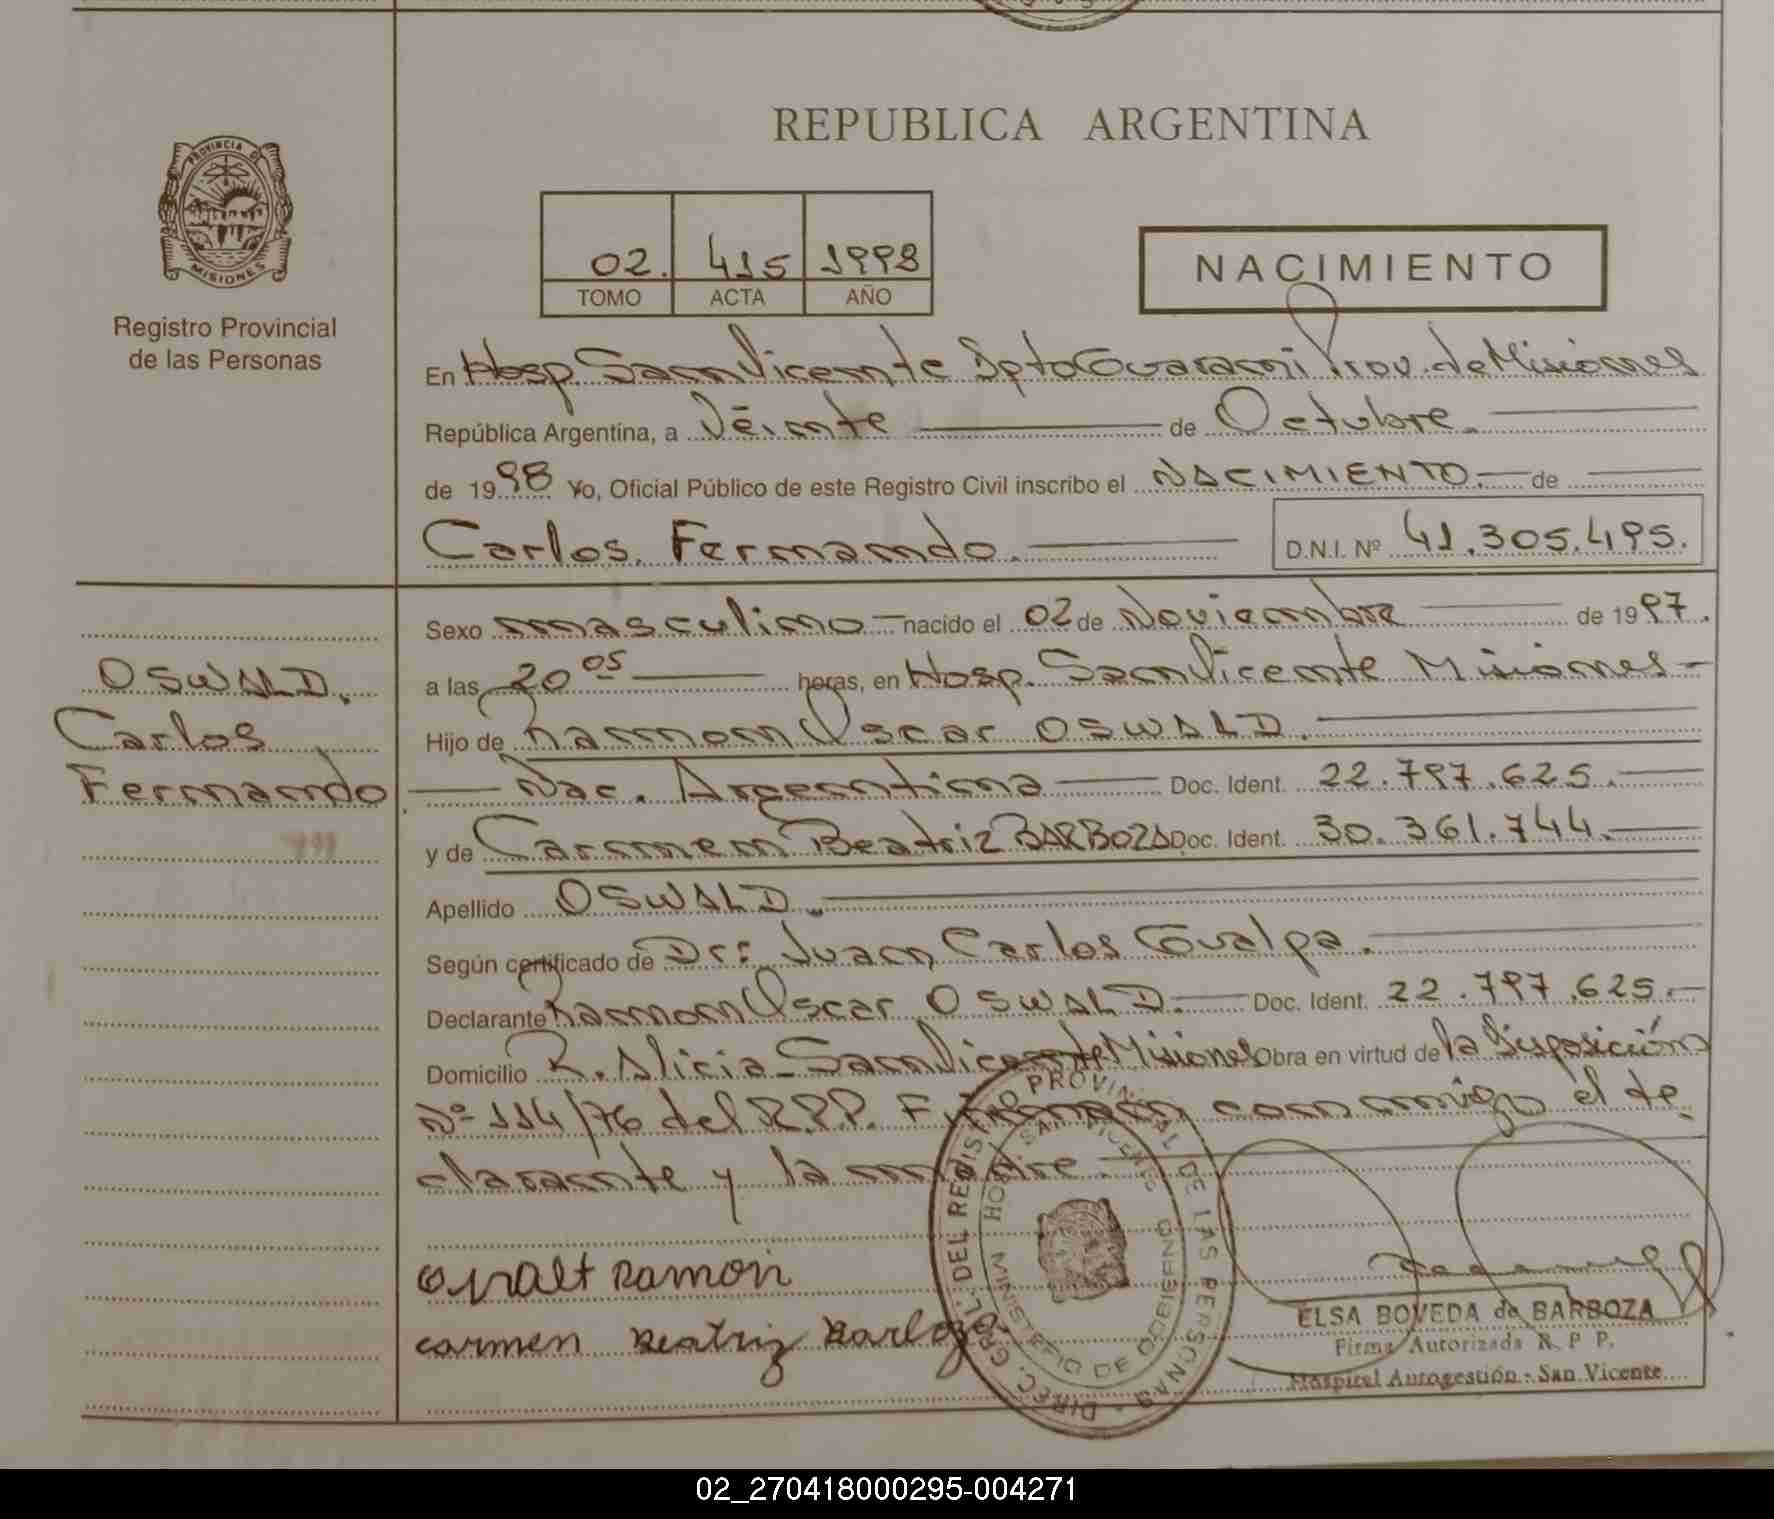 REPUBLICA ARGENTINA
PROVINCIA DE
MISIONES
Registro Provincial
de las Personas
02. 415 1998
TOMO ACTA AÑO
NACIMIENTO
En Hosp. San Vicente Dpto Guarani Prov. de Misiones
República Argentina, a Veinte de Octubre.
de 1998 Yo, Oficial Público de este Registro Civil inscribo el NACIMIENTO. de
Carlos. Fernando. D.N.I. Nº 41.305.495.
OSWALD.
Carlos
Fernando
Sexo masculino nacido el 02 de Noviembre de 1997.
a las 20 05 horas, en Hosp. San Vicente Misiones
Hijo de Ramon Oscar OSWALD.
Nac. Argentina Doc. Ident. 22.797.625.
y de Carmen Beatriz BARBOZA Doc. Ident. 30.361.744.
Apellido OSWALD.
Según certificado de Dr: Juan Carlos Gualpa.
Declarante Ramon Oscar OSWALD. Doc. Ident. 22.797.625.
Domicilio R. Alicia - San Vicente Misiones Obra en virtud de la disposición
Nº 114/76 del R.P.P. Firman conmigo el de
clarante y la madre.
Ramon
carmen Beatriz Barboza.
DIREC. GRAL. DEL REGISTRO PROVINCIAL DE LAS PERSONAS
HOSP. SAN VICENTE
MINISTERIO DE GOBIERNO
ELSA BOVEDA de BARBOZA
Firma Autorizada R. P. P.
Hospital Autogestión - San Vicente
02_270418000295-004271